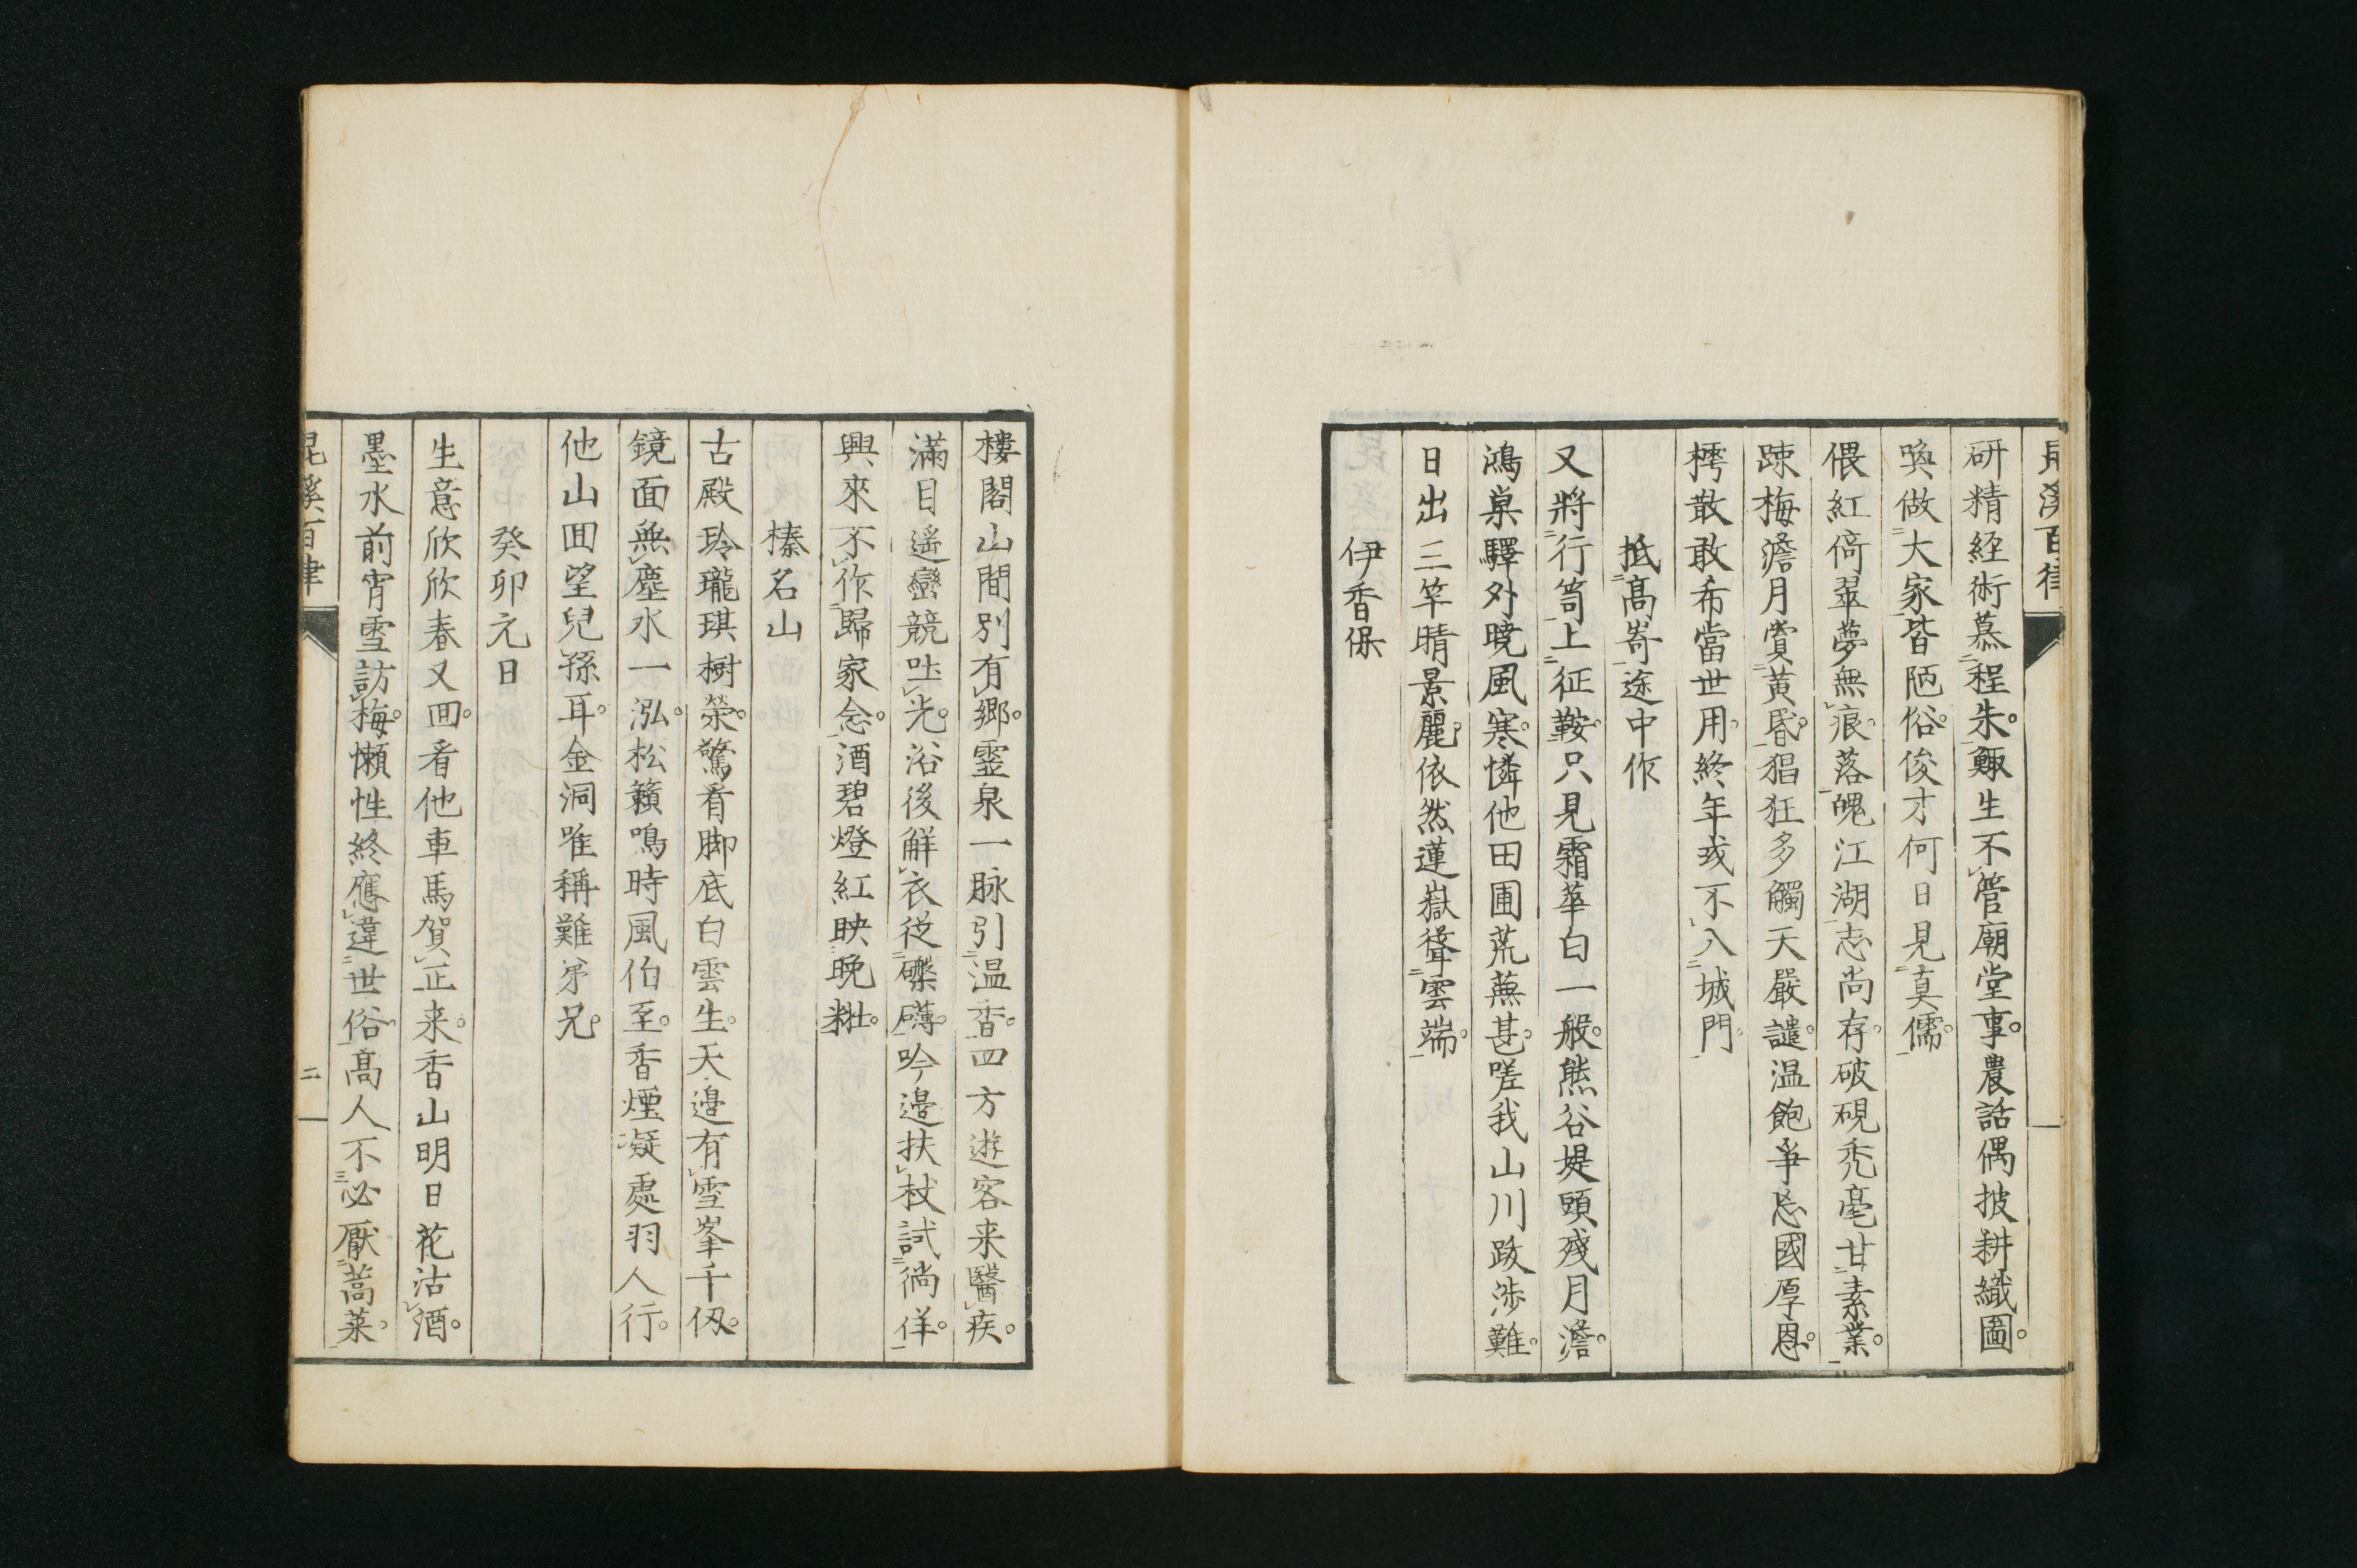 昆溪百律
研精経術慕程朱鯫生不管廟堂事農話偶披耕織圖
喚做大家皆陋俗俊才何日見真儒
偎紅倚翠夢無痕落魄江湖志尚存破硯禿毫甘素業
疎梅澹月賞黄昏猖狂多觸天嚴譴温飽爭忘國厚恩
樗散敢希當世用終年或不入城門
抵髙崎途中作
又將行笥上征鞍只見霜華白一般熊谷堤頭殘月澹
鴻巢驛外曉風寒憐他田圃荒蕪甚嗟我山川跋渉難
日出三竿晴景麗依然蓮嶽聳雲端
伊香保
樓閣山間別有郷靈泉一脉引温香四方遊客来醫疾
滿目遥巒競吐光浴後解衣從礫礴吟邉扶杖試徜徉
興來不作歸家念酒碧燈紅映晩糚
榛名山
古殿玲瓏琪樹榮驚看脚底白雲生天邉有雪峯千仭
鏡面無塵水一泓松籟鳴時風伯至香煙凝處羽人行
他山囬望兒孫耳金洞唯稱難弟兄
癸卯元日
生意欣欣春又囬看他車馬賀正来香山明日花沽酒
墨水前宵雪訪梅懶性終應違世俗髙人不必厭蒿莱
昆溪百律
二